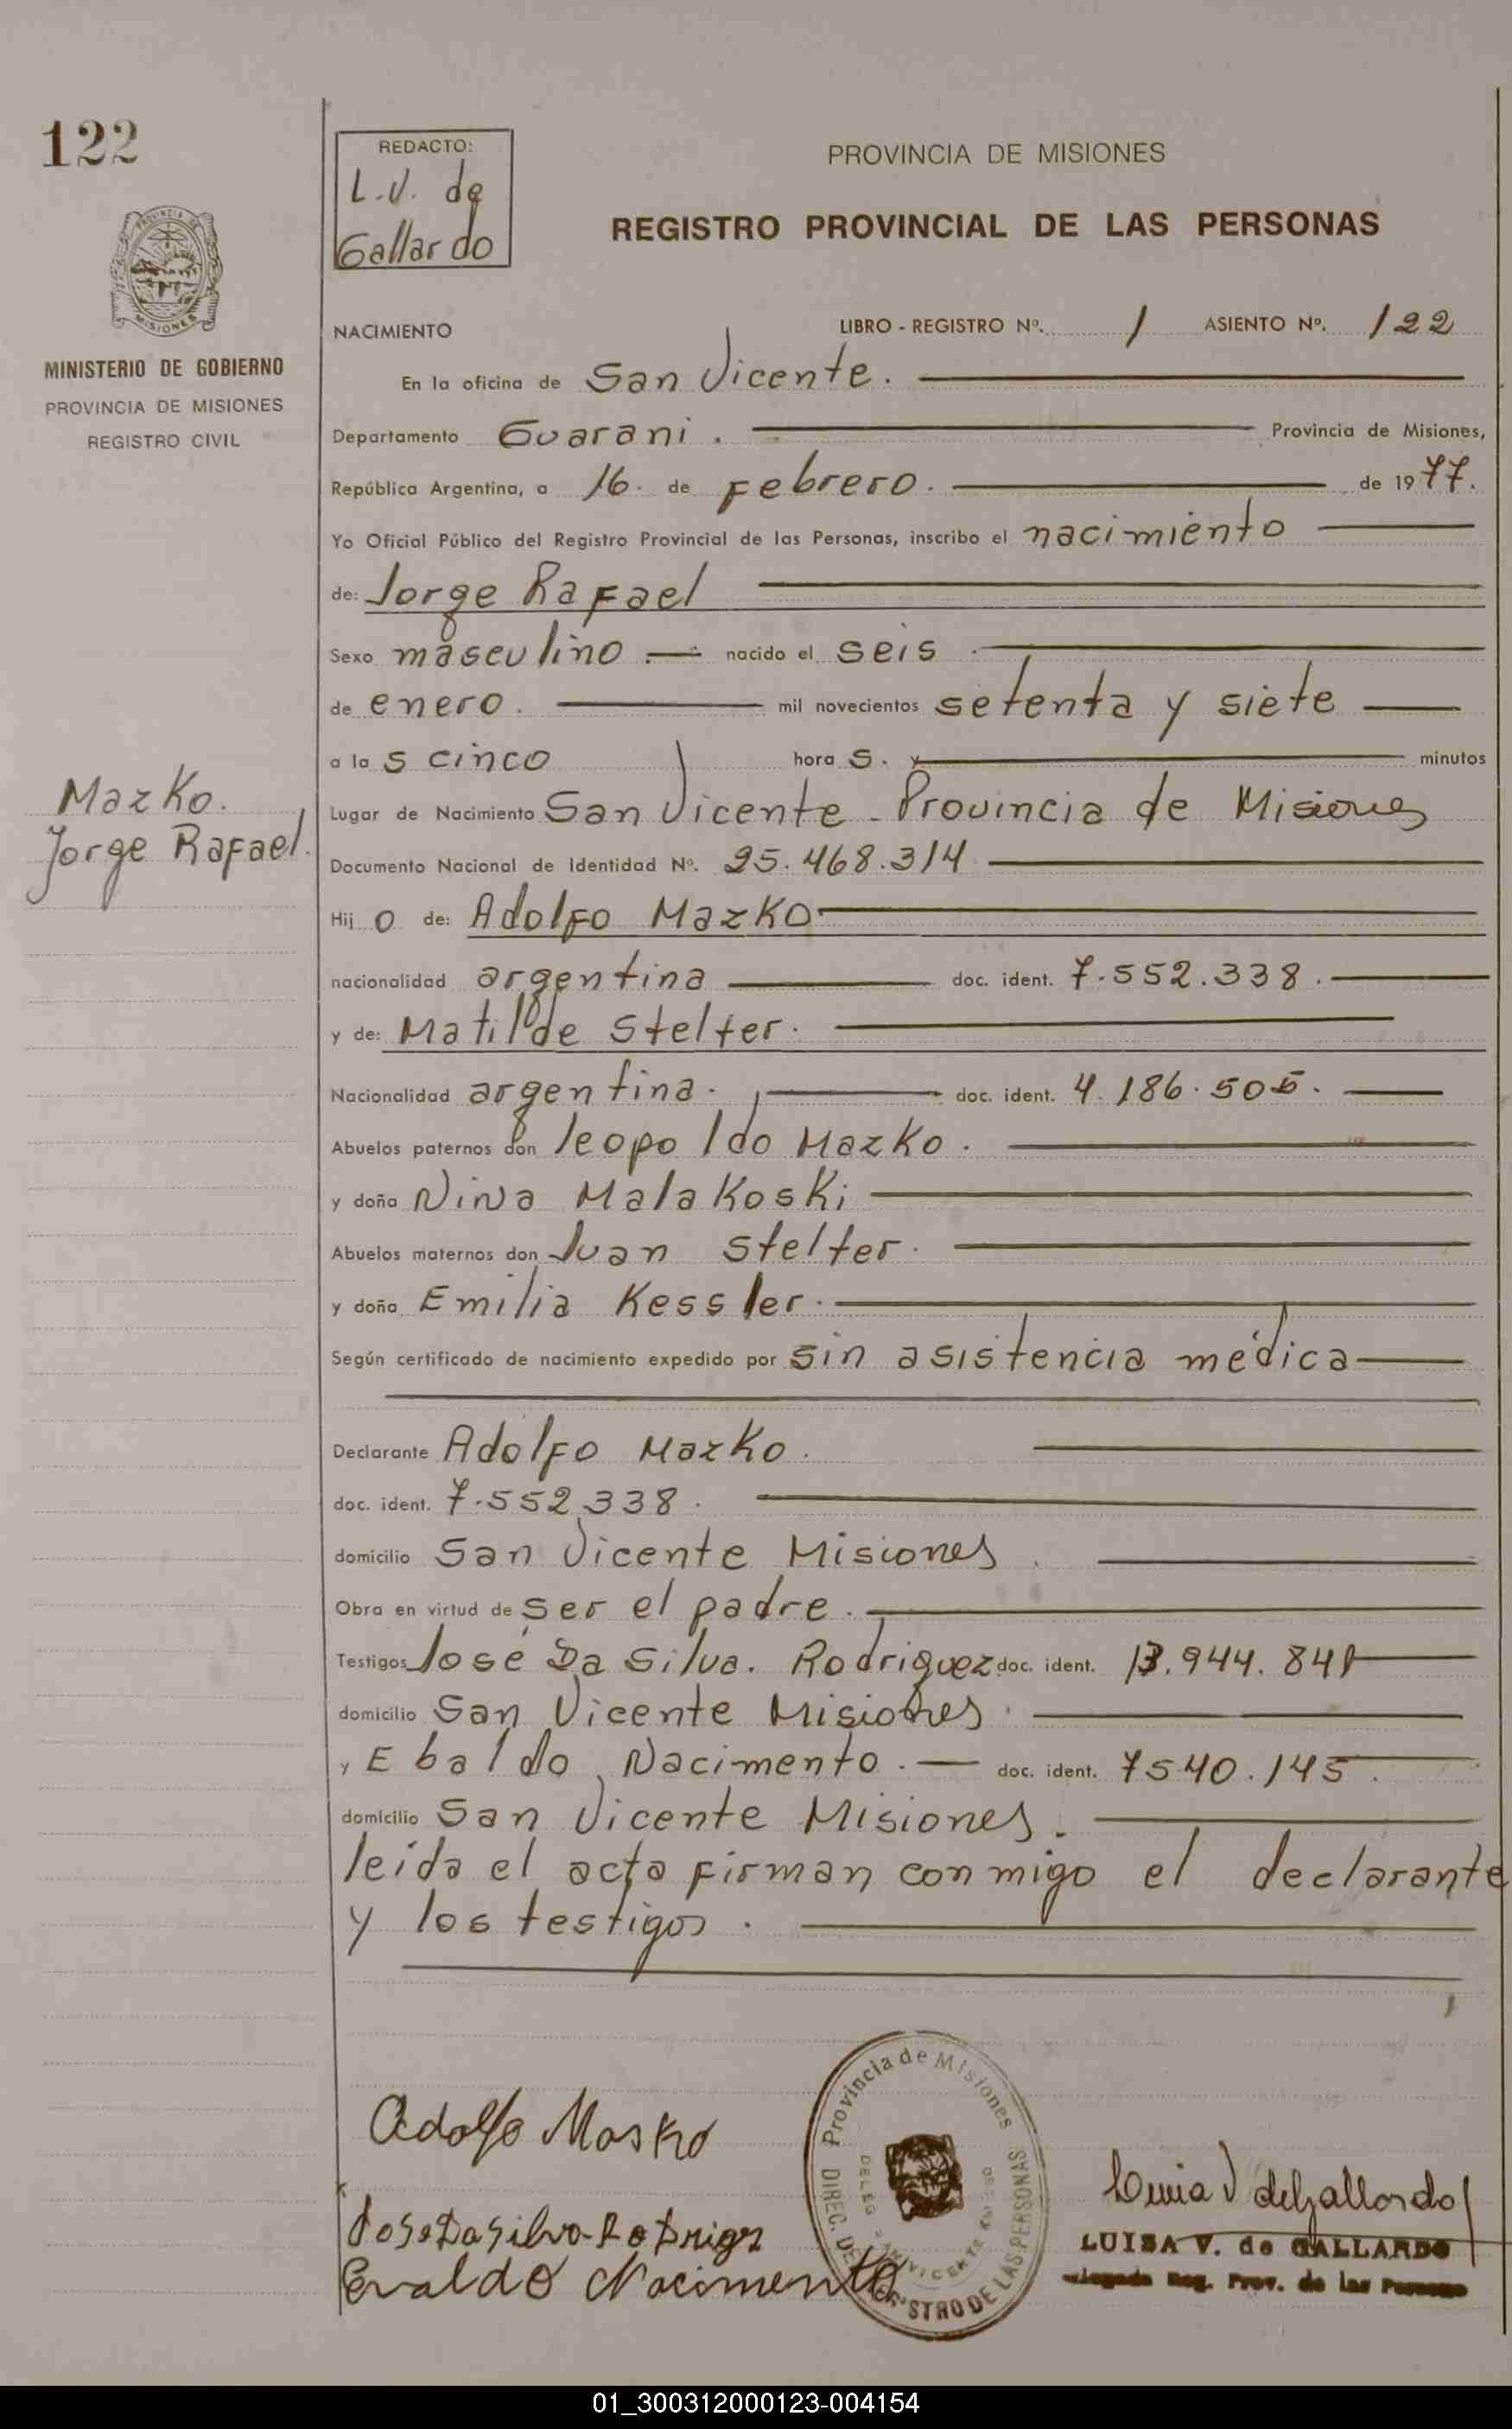 122
REDACTO:
L.V. de
Gallardo
PROVINCIA DE MISIONES
REGISTRO PROVINCIAL DE LAS PERSONAS
MINISTERIO DE GOBIERNO
PROVINCIA DE MISIONES
REGISTRO CIVIL
NACIMIENTO LIBRO - REGISTRO Nº. 1 ASIENTO Nº. 122
En la oficina de San Vicente.
Departamento Guarani. Provincia de Misiones,
República Argentina, a 16. de Febrero. de 1977.
Yo Oficial Público del Registro Provincial de las Personas, inscribo el nacimiento
de: Jorge Rafael
Sexo masculino. nacido el seis
de enero. mil novecientos setenta y siete
a las cinco horas. minutos
Mazko.
Jorge Rafael.
Lugar de Nacimiento San Vicente - Provincia de Misiones
Documento Nacional de Identidad Nº. 25.468.314
Hijo de: Adolfo Mazko
nacionalidad argentina doc. ident. 7.552.338.
y de: Matilde Stelter.
Nacionalidad argentina. doc. ident. 4.186.505.
Abuelos paternos don leopoldo Mazko.
y doña Nina Malakoski
Abuelos maternos don Juan Stelter.
y doña Emilia Kessler.
Según certificado de nacimiento expedido por sin asistencia médica
Declarante Adolfo Mazko.
doc. ident. 7.552.338.
domicilio San Vicente Misiones.
Obra en virtud de ser el padre.
Testigos José Da Silva. Rodriguez doc. ident. 13.944.841
domicilio San Vicente Misiones.
y Ebaldo Nacimento. doc. ident. 7540.145.
domicilio San Vicente Misiones.
leida el acta firman conmigo el declarante
y los testigos.
Adolfo Masko
Provincia de Misiones
DIREC. DE REGISTRO DE LAS PERSONAS
Jose Da Silva-Rodrigz
Evaldo Nacimento
LUISA V. de GALLARDO
Reg. Prov. de las Personas
01_300312000123-004154